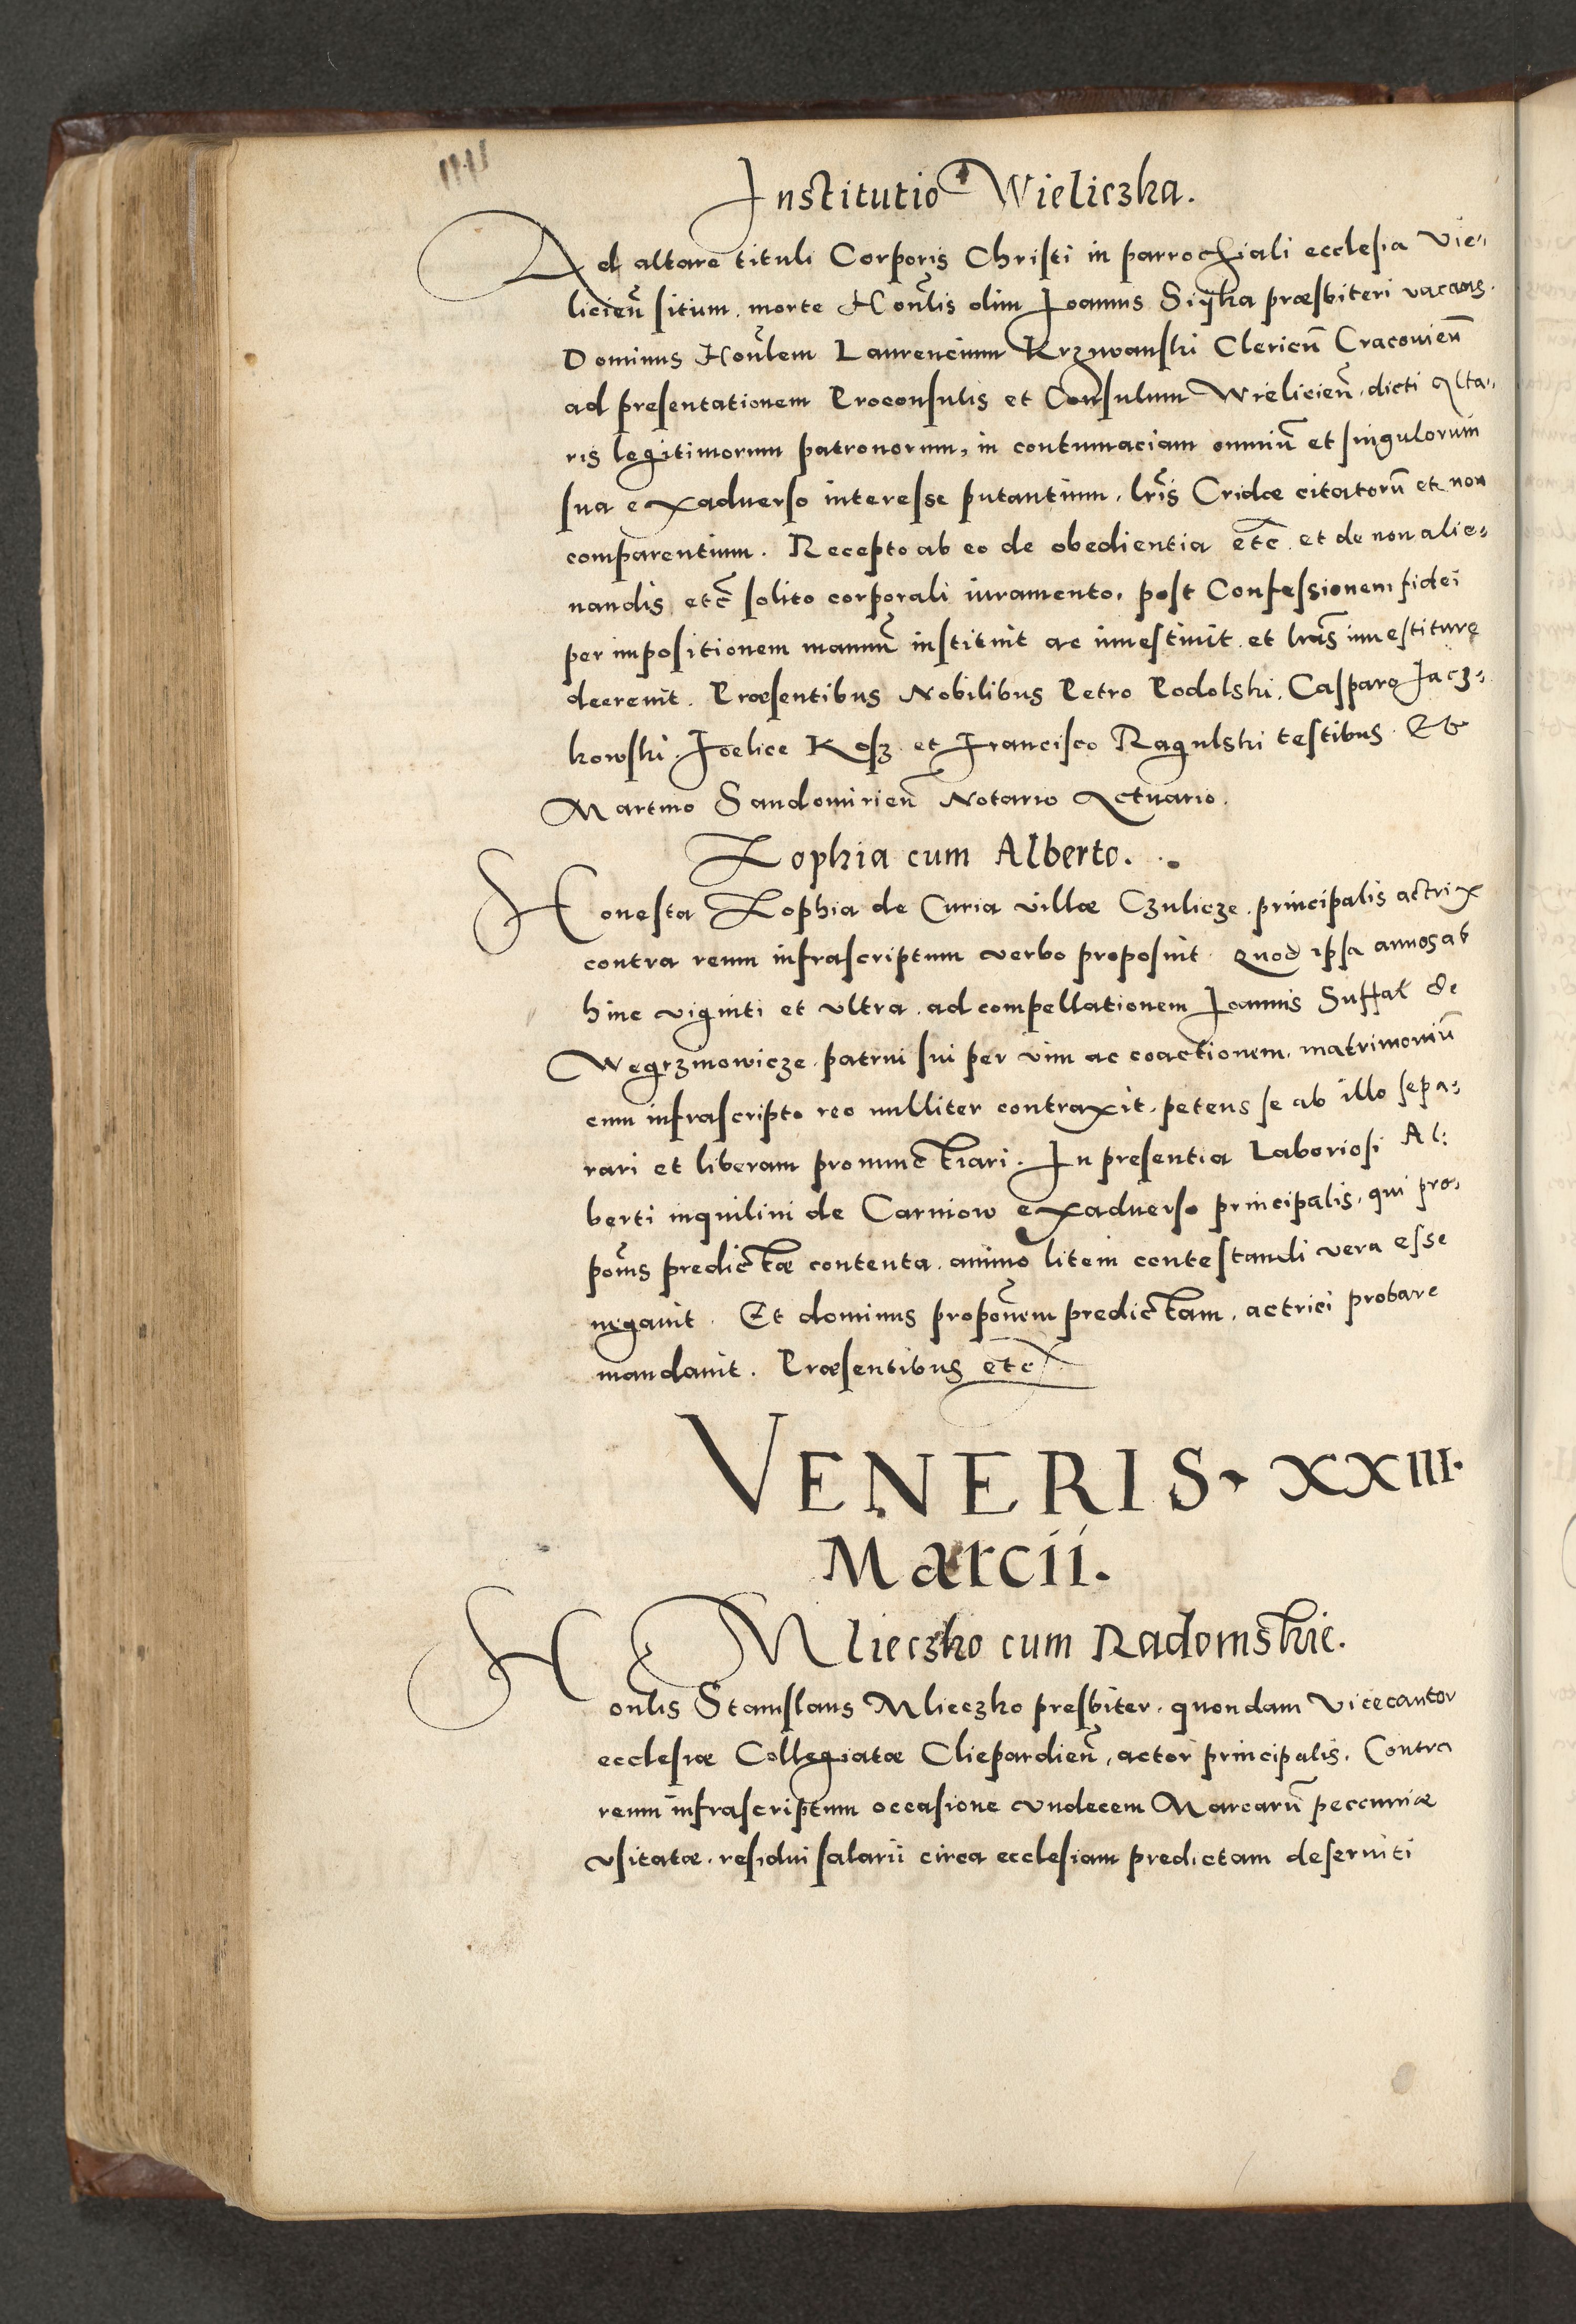 Institutio Wieliczka.
Ad altare tituli Corporis Christi in parrochiali ecclesia Vie,,
licien̄ situm, morte Hon̄lis olim Joannis Siỹka præsbiteri vacans.
Dominus Hon̄lem Laurencium Krzywanski Clericū Cracovien̄
ad presentationem Proconsulis et Consulum Wielicien̄, dicti Alta,,
ris legitimorum patronorum, in contumaciam omniū et singulorum
sua exadverso interesse putantium, lr̄is Cridæ citatorū et non
comparentium. Recepto ab eo de obedientia etc̄ et de non alie=
nandis etc̄ solito corporali iuramento, post Confessionem fidei
per impositionem manuū instituit ac investivit et lr̄as investiturę
decrevit. Præsentibus Nobilibus Petro Podolski, Casparo Jacz=
kowski, Foelice Kosz et Francisco Ragulski testibus. Et
Martino Sandomirien̄ Notario Actuario.
Zophia cum Alberto.
Honesta Zophia de Curia villæ Czulicze, principalis actrix
contra reum infrascriptum verbo proposuit. Quod ipsa annos ab
hinc viginti et ultra, ad compellationem Joannis Suffal de
Wegrzinowicze, patrui sui per vim ac coactionem, matrimoniū
cum infrascripto reo nulliter contraxit, petens se ab illo sepa=
rari et liberam pronunctiari. In presentia Laboriosi Al:
berti inquilini de Carniow exadverso principalis, qui pro,
pon̄is predictæ contenta, animo litem contestandi vera esse
negavit. Et dominus propon̄em predictam, actrici probare
mandavit. Præsentibus etc
VENERIS. XXIII.
Marcii.
Mlieczko cum Radomskie.
Honlis Stanislaus Mlieczko presbiter, quondam Vicecantor
ecclesiæ Collegiatæ Cliepardien̄, actor principalis, Contra
reum infrascriptum occasione undecem Marcarū peccuniæ
usitatæ, residui salarii circa ecclesiam predictam deserviti